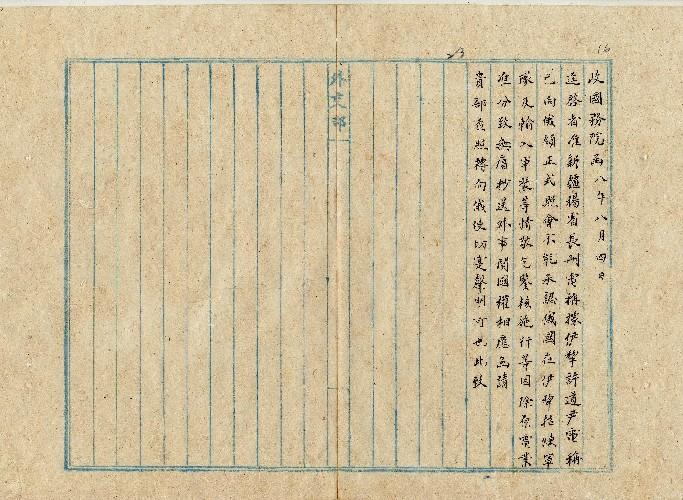 16
收國務院函 八年八月四日
逕啓者准新疆楊省長刪電稱據伊犂許道尹電稱
已向俄領正式照會不能承認俄國在伊犂招練軍
隊及輸入軍裝等情敬乞鑒核施行等因除原電業
准分致無庸抄送外事關國權相應函請
貴部查照轉向俄使切實聲明可也此致
外交部